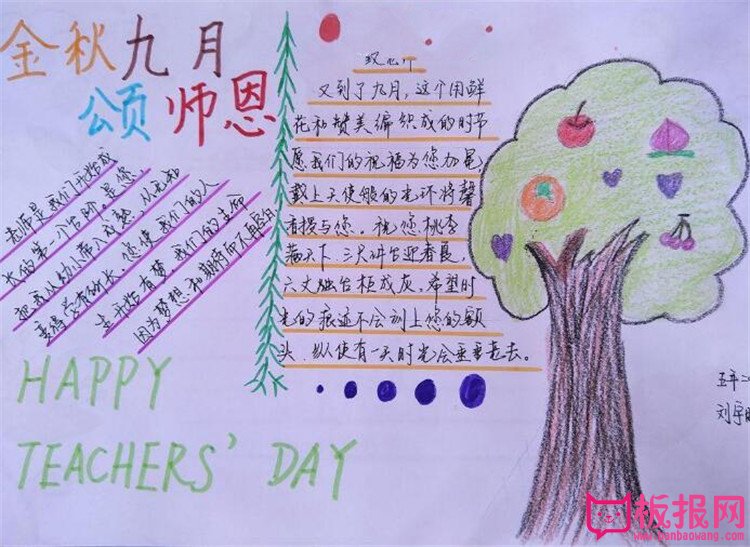 金秋九月
颂师恩
老师是我们开始成
长的第一个台阶。是您
把我从幼小带入成熟,从无知
我们的人
生开始有梦,我们的生命
因为梦想和期待而不再
HAPPY
TEACHERS' DAY
又到了九月,这个用鲜
花和赞美编织成的时节
愿我们的祝福为您加冕
戴上天使般的光环将馨
香授与您。祝您桃李
满天下,三尺讲台迎春晨,
六丈 成灰,希望时
光的痕迹不会刻上您的额
头,纵使有一天时光会 去。
五年二
刘宇
板报网
www.banbaowang.com